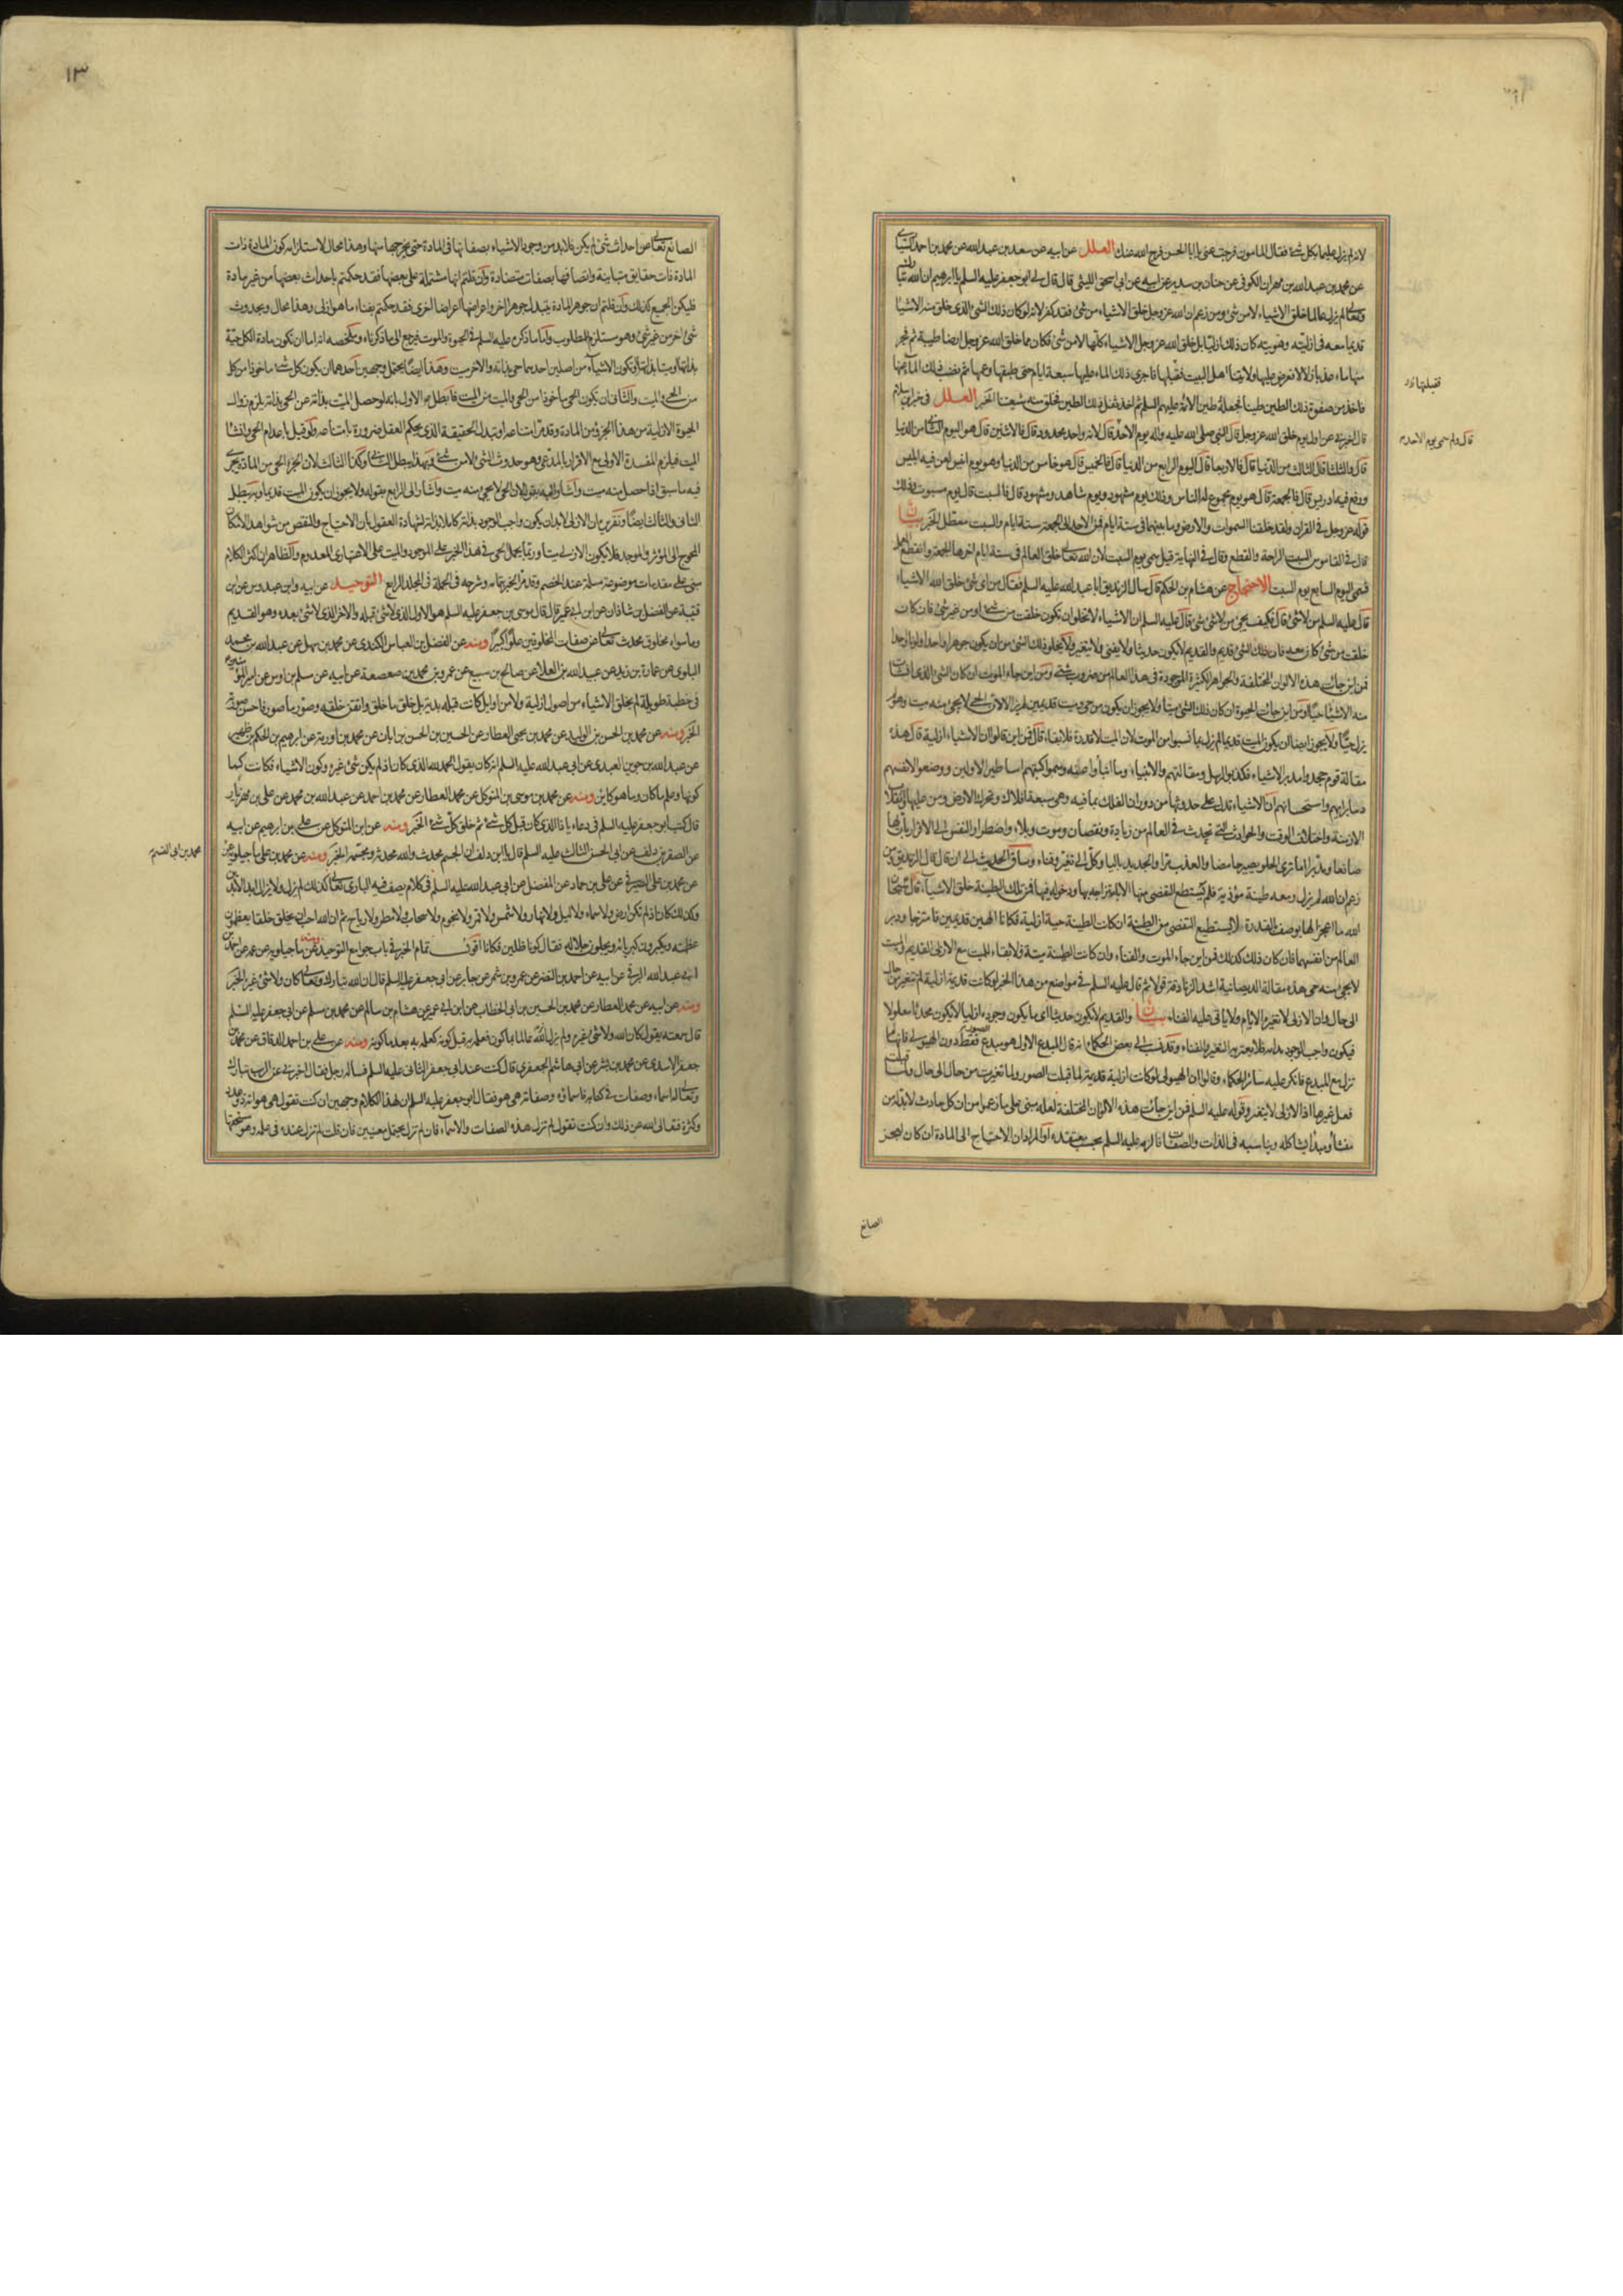 لانه لم يزل عليما بكل شئ فقال المأمون فرجت عني يا ابا الحسن فرج الله عنك العلل عن ابيه عن سعد بن عبد الله عن محمد بن احمد
عن محمد بن عبد الله بن مهران الكوفي عن حنان بن سدير عن ابيه عن ابي اسحق الليثي قال قال لي ابو جعفر عليه السلم يا ابرهيم ان الله تبارك
وتعالى لم يزل عالما خلق الاشياء لا من شئ ومن زعم ان الله عز وجل خلق الاشياء من شئ فقد كفر لانه لو كان ذلك الشئ الذي خلق منه الاشياء
قديما معه في ازليته وهويته كان ذلك ازليا بل خلق الله عز وجل الاشياء كلها لا من شئ فكان مما خلق الله عز وجل ارضا طيبة ثم فجر
منها ماء عذبا زلالا فعرض عليها ولايتنا اهل البيت فقبلها فاجرى ذلك الماء عليها سبعة ايام حتى طبقها وعمها ثم نضب ذلك الماء عنها
فقبلتها
فاخذ من صفوة ذلك الطين طينا فجعله طين الائمة عليهم السلم ثم اخذ ثفل ذلك الطين فخلق منه شيعتنا الخبر العلل في خبر ابن سلام
قال اخبرني عن اول يوم خلق الله عز وجل قال النبي صلى الله عليه واله يوم الاحد قال لانه واحد محدود قال فالاثنين قال هو اليوم الثاني من الدنيا
قال ولم سمي يوم الاحد
قال فالثلثا قال الثالث من الدنيا قال فالاربعا قال اليوم الرابع من الدنيا قال فالخميس قال هو خامس من الدنيا وهو يوم انيس لعن فيه ابليس
ورفع فيه ادريس قال فالجمعة قال هو يوم مجموع له الناس وذلك يوم مشهود ويوم شاهد ومشهود قال فالسبت قال يوم مسبوت وذلك
قوله عز وجل في القران ولقد خلقنا السموات والارض وما بينهما في ستة ايام فمن الاحد الى الجمعة ستة ايام والسبت معطل الخبر بيان
قال في القاموس السبت الراحة والقطع وقال في النهاية قيل سمي يوم السبت لان الله تعالى خلق العالم في ستة ايام اخرها الجمعة وانقطع العمل
فسمي اليوم السابع يوم السبت الاحتجاج عن هشام بن الحكم قال سأل الزنديق ابا عبد الله عليه السلم فقال من اى شئ خلق الله الاشياء
قال عليه السلم من لا شئ قال فكيف يجئ من لا شئ شئ قال عليه السلم ان الاشياء لا تخلو ان تكون خلقت من شئ او من غير شئ فان كانت
خلقت من شئ كان معه فان ذلك الشئ قديم والقديم لا يكون حديثا ولا يفنى ولا يتغير ولا يخلو ذلك الشئ من ان يكون جوهرا واحدا ولونا واحدا
فمن اين جائت هذه الالوان المختلفة والجواهر الكثيرة الموجودة في هذا العالم من ضروب شتى ومن اين جاء الموت ان كان الشئ الذى انشئت
منه الاشياء حيا ومن اين جائت الحيوة ان كان ذلك الشئ ميتا ولا يجوز ان يكون من حي وميت قديمين لم يزالا لان الحي لا يجئ منه ميت وهو لم
يزل حيا ولا يجوز ايضا ان يكون الميت قديما لم يزل بما نسبوا من الموت لان الميت لا قدرة له فلا بقاء قال فمن اين قالوا ان الاشياء ازلية قال هذه
مقالة قوم جحدوا مدبر الاشياء فكذبوا الرسل ومقالتهم والانبياء وما انبأوا عنه وسموا كتبهم اساطير الاولين ووضعوا لانفسهم
دينا برايهم واستحسانهم ان الاشياء تدل على حدوثها من دوران الفلك بما فيه وهي سبعة افلاك وتحرك الارض ومن عليها وانقلاب
الازمنة واختلاف الوقت والحوادث التي تحدث في العالم من زيادة ونقصان وموت وبلاء واضطرار النفس الى الاقرار بأن لها
صانعا ومدبرا اما ترى الحلو يصير حامضا والعذب مرا والجديد باليا وكل الى تغير وفناء وساق الحديث الى ان قال قال الزنديق ومن
زعم ان الله لم يزل ومعه طينة مؤذية فلم يستطع التفصي منها الا بامتزاجه بها ودخوله فيها فمن تلك الطينة خلق الاشياء قال سبحان
الله ما اعجز الها يوصف بالقدرة لا يستطيع التفصي من الطينة ان كانت الطينة حية ازلية فكانا الهين قديمين فامتزجا ودبرا
العالم من انفسهما فان كان ذلك كذلك فمن اين جاء الموت والفناء وان كانت الطينة ميتة فلا بقاء للميت مع الازلي القديم والميت
لا يجئ منه حي هذه مقالة الديصانية اشد الزنادقة قولا ثم قال عليه السلم في مواضع من هذا الخبر لو كانت قديمة ازلية لم تتغير من حال
الى حال وان الازلي لا تغيره الايام ولا ياتي عليه الفناء بيان والقديم لا يكون حديثا اى ما يكون وجوده ازليا لا يكون محدثا معلولا
فيكون واجب الوجود بذاته فلا يعتريه التغير والفناء وقد نسب الى بعض الحكماء انه قال المبدع الاول هو مبدع الصور فقط دون الهيولى فانها لم
تزل مع المبدع فانكر عليه سائر الحكماء وقالوا ان الهيولى لو كانت ازلية قديمة لما قبلت الصور ولما تغيرت من حال الى حال ولما قبلت
فعل غيرها اذ الازلي لا يتغير وقوله عليه السلم فمن اين جائت هذه الالوان المختلفة لعله مبني على ما زعموا من ان كل حادث لا بد له من
منشأ ومبدأ يشاكله ويناسبه في الذات والصفات فالزمه عليه السلم بحسب معتقده او المراد ان الاحتياج الى المادة ان كان لعجز
الصانع
١٣
الصانع تعالى عن احداث شئ لم يكن فلا بد من وجود الاشياء بصفاتها في المادة حتى يخرجها منها وهذا محال لاستلزامه كون المادة ذات
المادة ذات حقايق متباينة واتصافها بصفات متضادة وان قلتم انها مشتملة على بعضها فقد حكمتم باحداث بعضها من غير مادة
فليكن الجميع كذلك وان قلتم ان جوهر المادة يتبدل جوهرا اخر واعراضها اعراضا اخرى فقد حكمتم بفناء ما هو ازلي وهذا محال وبحدوث
شئ اخر من غير شئ وهو مستلزم للمطلوب واما ما ذكره عليه السلم في الحيوة والموت فيرجع الى ما ذكرناه وملخصه انه اما ان تكون مادة الكل حية
بذاتها او ميتة بذاتها او تكون الاشياء من اصلين احدهما حي بذاته والاخر ميت وهذا ايضا يحتمل وجهين احدهما ان يكون كل شئ ماخوذا من كل
من الحي والميت والثاني ان يكون الحي ماخوذا من الحي والميت من الميت فابطل الاول بانه لو حصل الميت بذاته عن الحي بذاته يلزم زوال
الحيوة الازلية من هذا الجزء من المادة وقد مر امتناعه او تبدل الحقيقة الذي يحكم العقل ضرورة بامتناعه ولو قيل باعدام الحي وانشاء
الميت فيلزم المفسدة الاولى مع الاقرار بالمدعى وهو حدوث الشئ لا من شئ وبهذا يبطل الثاني وكذا الثالث لان الجزء الحي من المادة يجرى
فيه ما سبق اذا حصل منه ميت واشار اليه بقوله لان الحي لا يجئ منه ميت واشار الى الرابع بقوله ولا يجوز ان يكون الميت قديما وبه يبطل
الثاني والثالث ايضا وتقريره ان الازلي لا بد ان يكون واجب الوجود بذاته كاملا بذاته لشهادة العقول بأن الاحتياج والنقص من شواهد الامكان
المحوج الى المؤثر والموجد فلا يكون الازلي ميتا وربما يحمل الحي في هذا الخبر على الموجود والميت على الاعتبارى المعدوم والظاهر ان اكثر الكلام
مبني على مقدمات موضوعة مسلمة عند الخصم وقد مر الخبر بتمامه وشرحه في الجملة في المجلد الرابع التوحيد عن ابيه وابن عبدوس عن ابن
قتيبة عن الفضل بن شاذان عن ابن ابي عمير قال قال موسى بن جعفر عليه السلم هو الاول الذي لا شئ قبله والاخر الذي لا شئ بعده وهو القديم
وما سواه مخلوق محدث تعالى عن صفات المخلوقين علوا كبيرا ومنه عن الفضل بن العباس الكندى عن محمد بن سهل عن عبد الله بن محمد
البلوى عن عمارة بن زيد عن عبيد الله بن العلا عن صالح بن سبيع عن عمرو بن محمد بن صعصعة عن ابيه عن مسلم بن اوس عن امير المؤمنين
في خطبة طويلة لم يخلق الاشياء من اصول ازلية ولا من اوايل كانت قبله بدية بل خلق ما خلق واتقن خلقه وصور ما صور فاحسن صورته
الخبر ومنه عن محمد بن الحسن بن الوليد عن محمد بن يحيى العطار عن الحسين بن الحسن بن ابان عن محمد بن اورمة عن ابرهيم بن الحكم بن ظهير
عن عبد الله بن جوين العبدى عن ابي عبد الله عليه السلم انه كان يقول الحمد لله الذى كان اذ لم يكن شئ غيره وكون الاشياء فكانت كما
كونها وعلم ما كان وما هو كاين ومنه عن محمد بن موسى بن المتوكل عن محمد العطار عن محمد بن احمد عن عبد الله بن محمد عن علي بن مهزيار
قال كتب ابو جعفر عليه السلم في دعاء يا ذا الذى كان قبل كل شئ ثم خلق كل شئ الخبر ومنه عن ابن المتوكل عن علي بن ابرهيم عن ابيه
عن الصقر بن دلف عن ابي الحسن الثالث عليه السلم قال يا ابن دلف ان الجسم محدث والله محدثه ومجسمه الخبر ومنه عن محمد بن علي ماجيلويه عن
محمد بن ابي القسم
عن محمد بن علي الصيرفي عن علي بن حماد عن المفضل عن ابي عبد الله عليه السلم في كلام يصف فيه البارى تعالى كذلك لم يزل ولا يزال ابد الابدين
وكذلك كان اذ لم تكن ارض ولا سماء ولا ليل ولا نهار ولا شمس ولا قمر ولا نجوم ولا سحاب ولا مطر ولا رياح ثم ان الله احب ان يخلق خلقا يعظمون
عظمته ويكبرون كبريائه ويجلون جلاله فقال كونا ظلين فكانا اقول تمام الخبر في باب جوامع التوحيد ومنه عن ماجيلويه عن عمه عن احمد بن
ابي عبد الله البرقي عن ابيه عن احمد بن النضر عن عمرو بن شمر عن جابر عن ابي جعفر عليه السلم قال ان الله تبارك وتعالى كان ولا شئ غيره الخبر
ومنه عن ابيه عن محمد العطار عن محمد بن الحسين بن ابي الخطاب عن ابن ابي عمير عن هشام بن سالم عن محمد بن مسلم عن ابي جعفر عليه السلم
قال سمعته يقول كان الله ولا شئ غيره ولم يزل الله عالما بما كون فعلمه به قبل كونه كعلمه به بعد ما كونه ومنه عن علي بن احمد الدقاق عن محمد بن
جعفر الاسدى عن محمد بن بشر عن ابي هاشم الجعفرى قال كنت عند ابي جعفر الثاني عليه السلم فساله رجل فقال اخبرني عن الرب تبارك
وتعالى اله اسماء وصفات في كتابه فاسماؤه وصفاته هي هو فقال ابو جعفر عليه السلم ان لهذا الكلام وجهين ان كنت تقول هي هو انه ذو عدد
وكثرة فتعالى الله عن ذلك وان كنت تقول لم تزل هذه الصفات والاسماء فان لم تزل يحتمل معنيين فان قلت لم تزل عنده في علمه وهو مستحقها